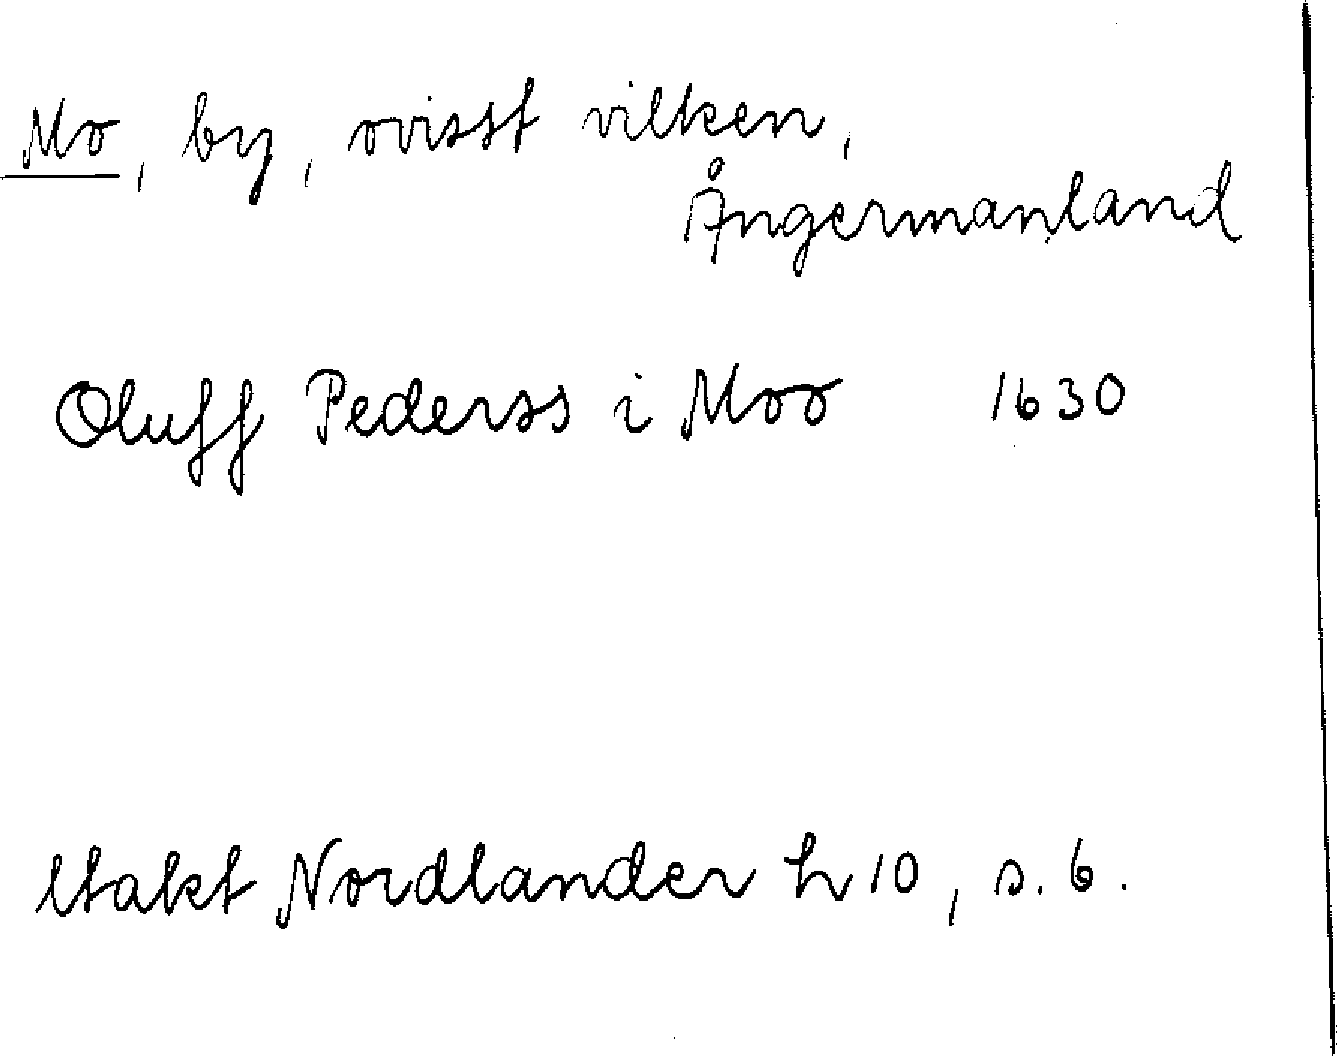 Mo, by, ovisst vilken,
Ångermanland
Oluff Pederss i Moo 1630
Utakt Nordlander h 10, s. 6.